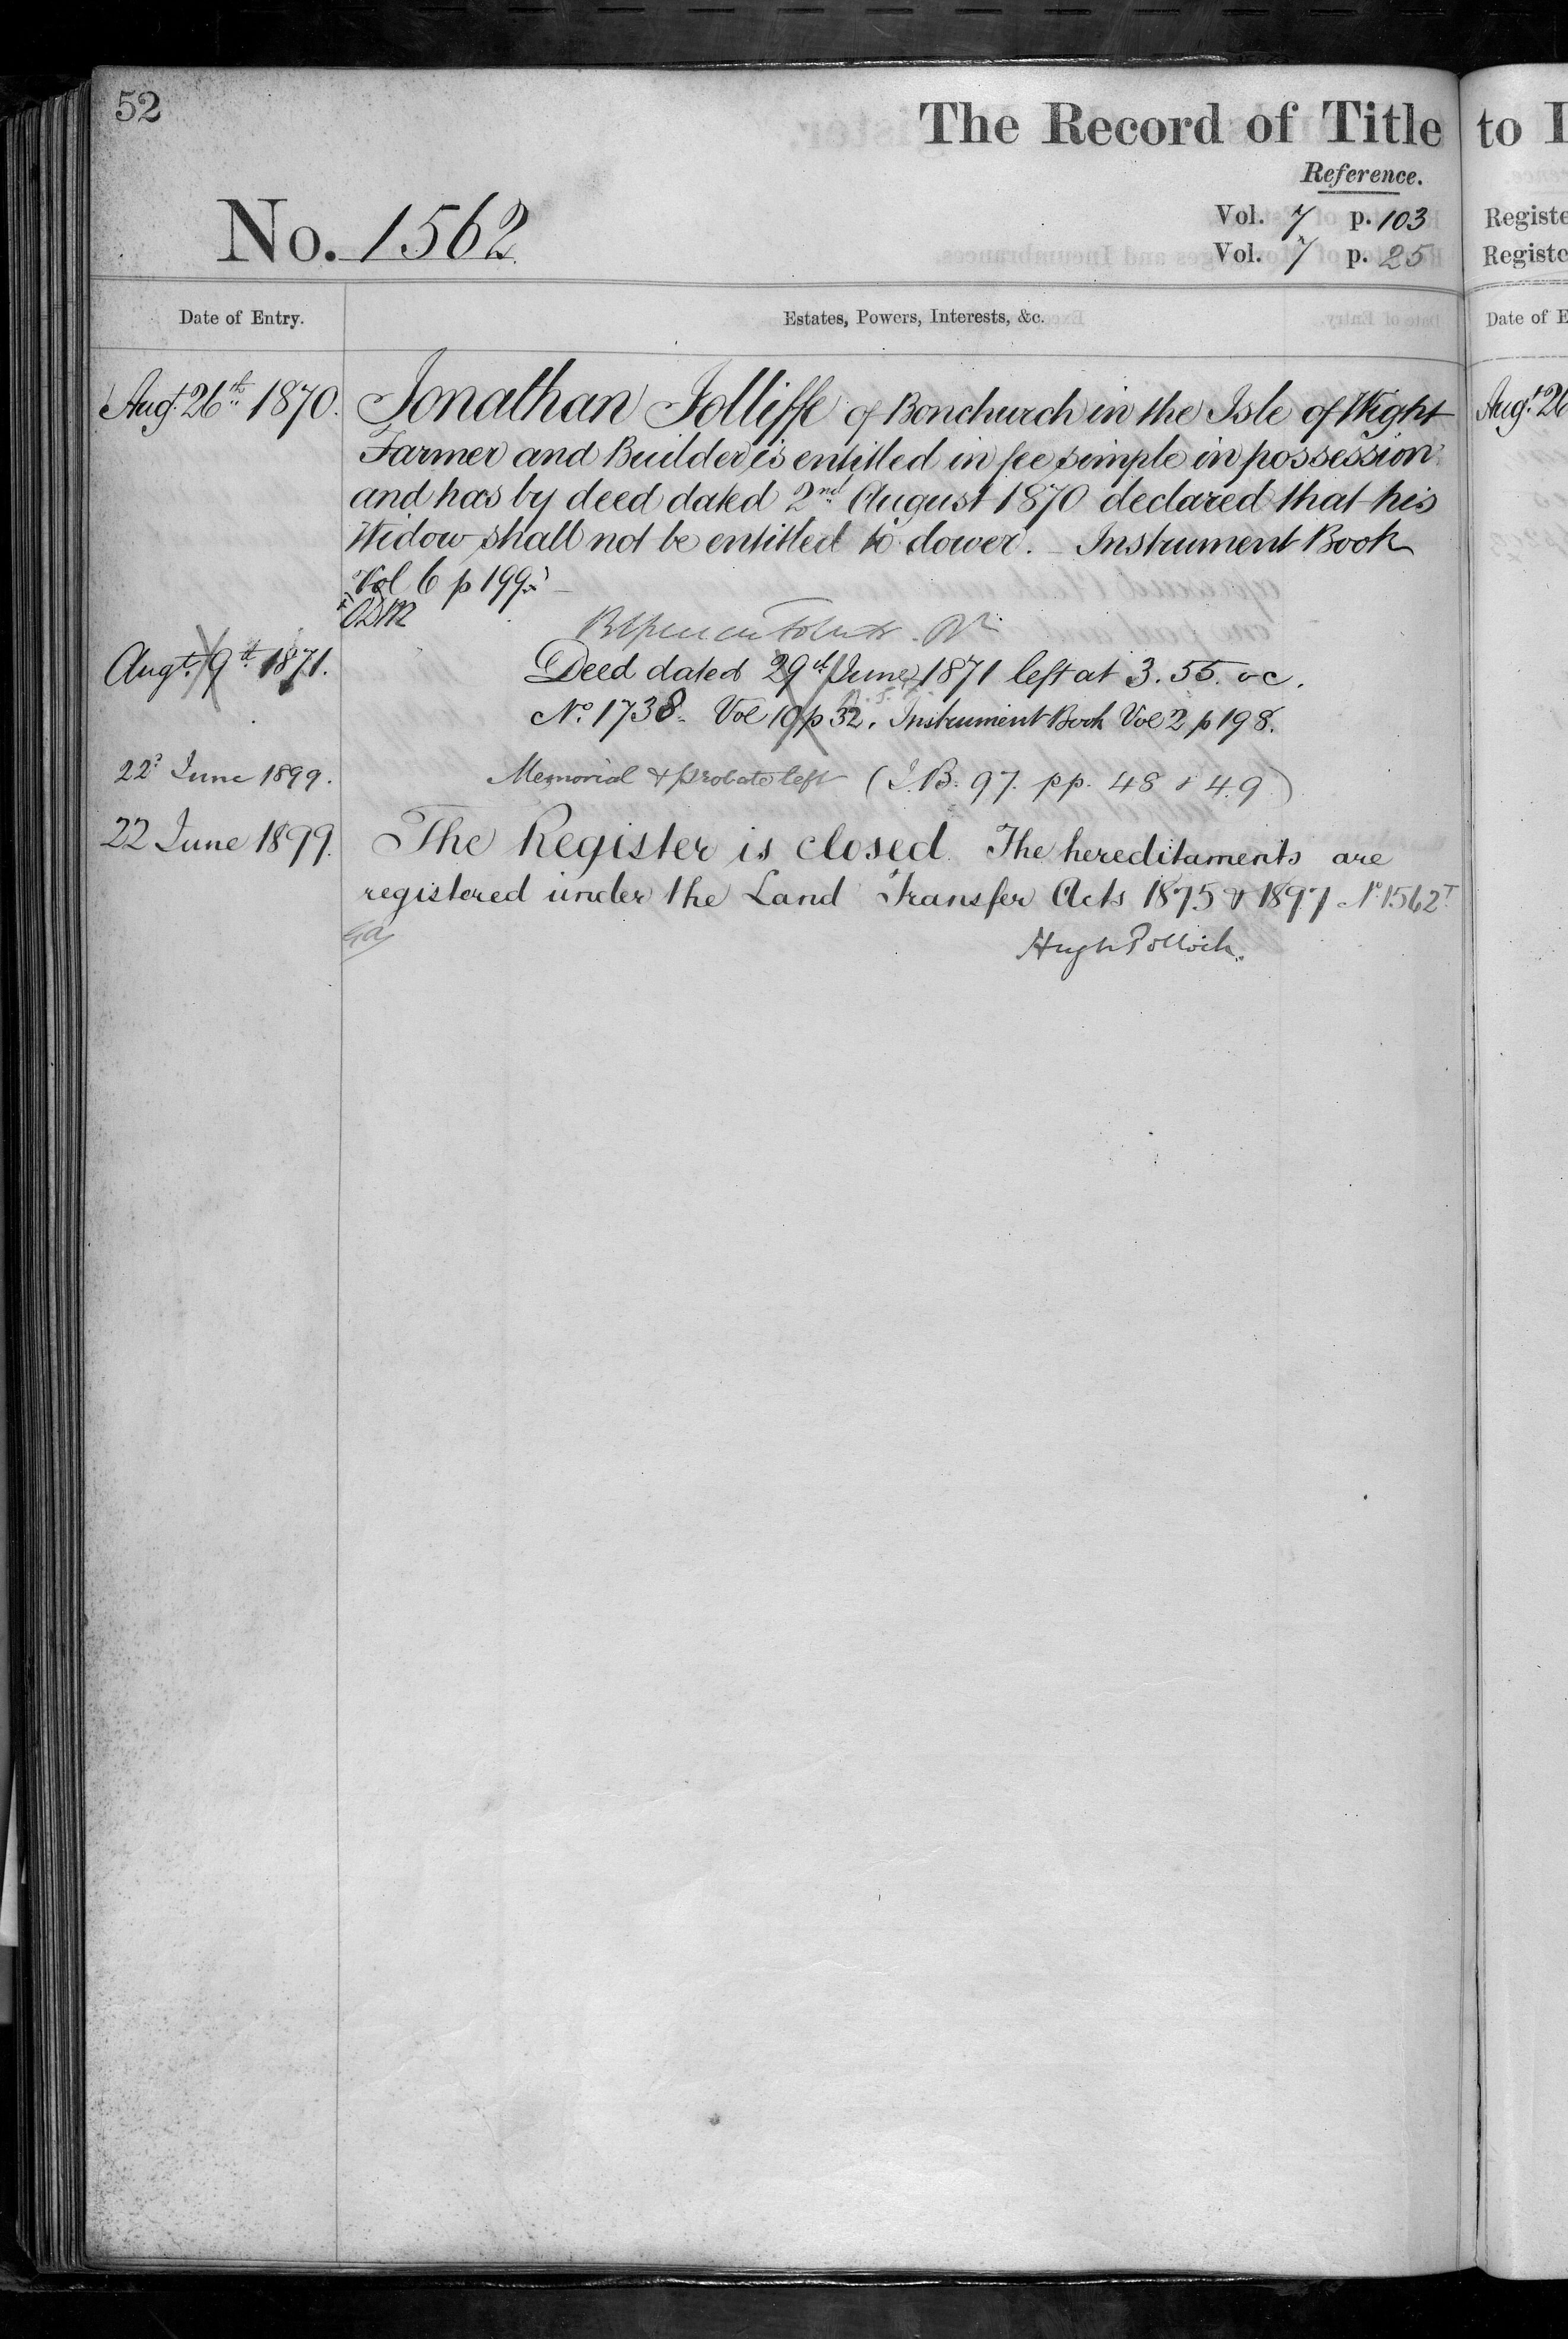 52
The Record of Title
Reference.
No. 1562
Vol. 7 p. 103
Vol. 7 p. 25
Date of Entry.
Estates, Powers, Interests, &c.
Augt. 26th 1870.
Jonathan Jolliffe of Bonchurch in the Isle of Wight
Farmer and Builder is entitled in fee simple in possession
and has by deed dated 2nd August 1870 declared that his
Widow shall not be entitled to dower. — Instrument Book
Vol 6 p 199.
Augt. 9th 1871.
Deed dated 29th June 1871 left at 3.55. oc.
No. 1738. Vol 10 p 32. Instrument Book Vol 2 p 198.
22d June 1899.
Memorial & probate left (I.B. 97. pp. 48 & 49)
22 June 1899.
The Register is closed. The hereditaments are
registered under the Land Transfer Acts 1875 & 1897 No. 1562T
Hugh Pollock.
to
Registe
Registe
Date of E
Augt. 26